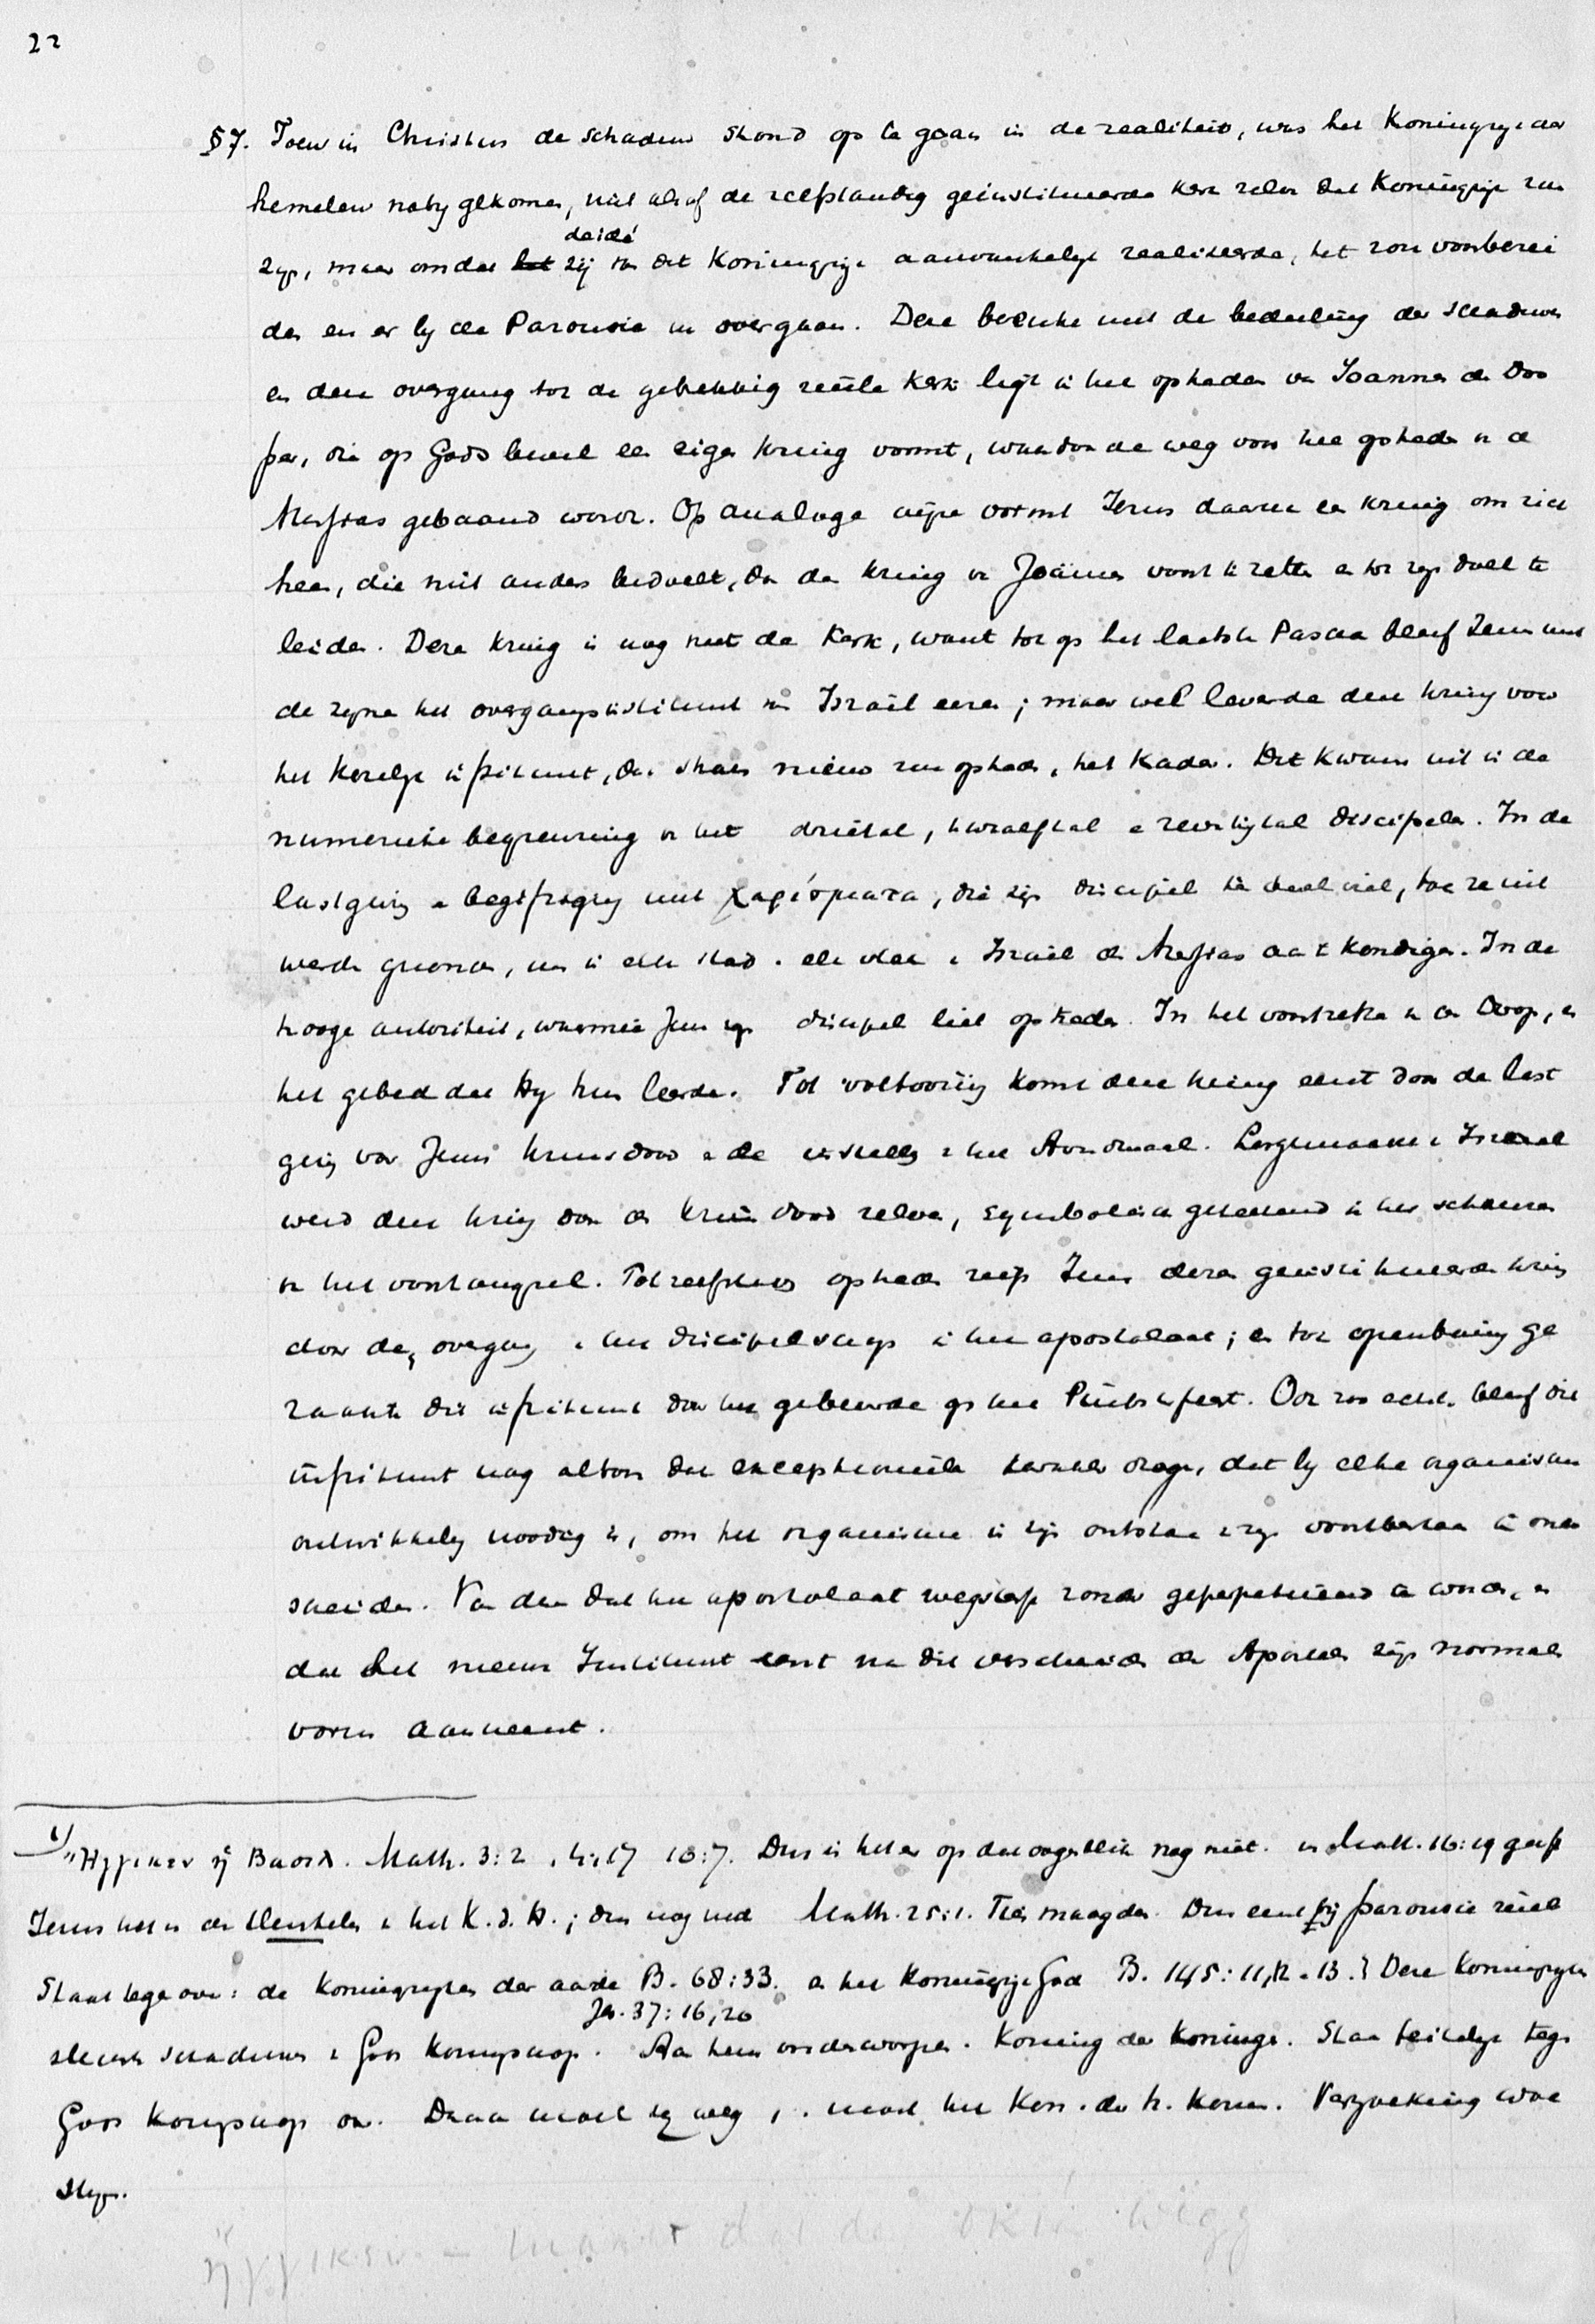 22
§7. Toen in Christus de schaduw stond op te gaan in de realiteit, was het Koningrijk der
hemelen naby gekomen, niet alsof de zelfstandig geïnstitueerde kerk zelve dat Koningrijk zou
zyn, maar omdat zij dat Koningrijk aanvankelyk realiseerde, het zou voorberei
den en er by de Parousie in overgaan. Deze breuke met de bedeeling der schaduwen
en deze overgang tot de gebrekkig reëele Kerk ligt in het optreden van Joannes de Doo
per, die op Gods bevel een eigen kring vormt, waardoor de weg voor het optreden van de
Messias gebaand wordt. Op analoge wijze vormt Jezus daarna een kring om zich
heen, die niet anders bedoelt, dan de kring van Joannes voort te zetten en tot zyn doel te
leiden. Deze kring is nog niet de Kerk, want tot op het laatste Pascha bleef Jezus met
de zyne het overgangsinstituut van Israël eeren; maar wel leverde deze kring voor
het Kerkelyk instituut, dat straks nieuw zou optreden, het Kader. Dit kwam uit in de
numerieke begrenzing van het drietal, twaalftal en zeventigtal discipelen. In de
lastgeving en begiftiging met χαρίσματα, die zijn discipelen ten deel viel, toe ze uit
werden gezonden, om in elke stad en elk vlek in Israël de Messias aan te kondigen. In de
hooge autoriteit, waarmee Jezus zyn discipelen liet optreden. In het voortzetten van den Doop, en
het gebed dat Hy hen leerde. Tot voltooiing komt deze kring eerst door de last
geving van Jezus' kruisdood en de instelling van het Avondmaal. Losgemaakt van Israel
werd deze kring door den kruisdood zelven, symbolisch geteekend in het scheuren
van het voorhangsel. Tot zelfstandig optreden riep Jezus dezen geïnstitueerden kring
door den overgang van het discipelschap in het apostolaat; en tot openbaring ge
raakte dit instituut door het gebeurde op het Pinksterfeest. Ook zoo echter bleef dit
instituut nog altoos dat exceptioneele karakter dragen, dat by elke organische
ontwikkeling noodig is, om het organisme in zijn ontstaan en zyn voortbestaan te onder
scheiden. Van daar dat het apostolaat wegstierf zonder geperpetueerd te worden, en
dat het nieuwe Instituut eerst na dit verscheiden der Apostelen zijn normalen
vorm aanneemt.
1) Ἤγγικεν ἡ Βασιλ. Matth. 3:2, 4:17 10:7. Dus is het er op dat oogenblik nog niet. In Matth. 16:19 geeft
Jezus hen de sleutelen van het K. d. H.; dus nog niet Matth. 25:1. Tien maagden. Dus eerst bij parousie reëel
Staat tegenover: de Koningryken der aarde Ps. 68:33. en het Koningrijk God Ps. 145:11,12-13. Deze Koningryken
Jes. 37:16,20
slechts schaduwen van Gods Koningschap. Aan hem onderworpen. Koning der Koningen. Staan feitelyk tegen
Gods Koningschap over. Daarom moet hy weg, en moet het Kon. der h. komen. Verzoeking woe
styn.
ἤγγικεν – maakt dat de